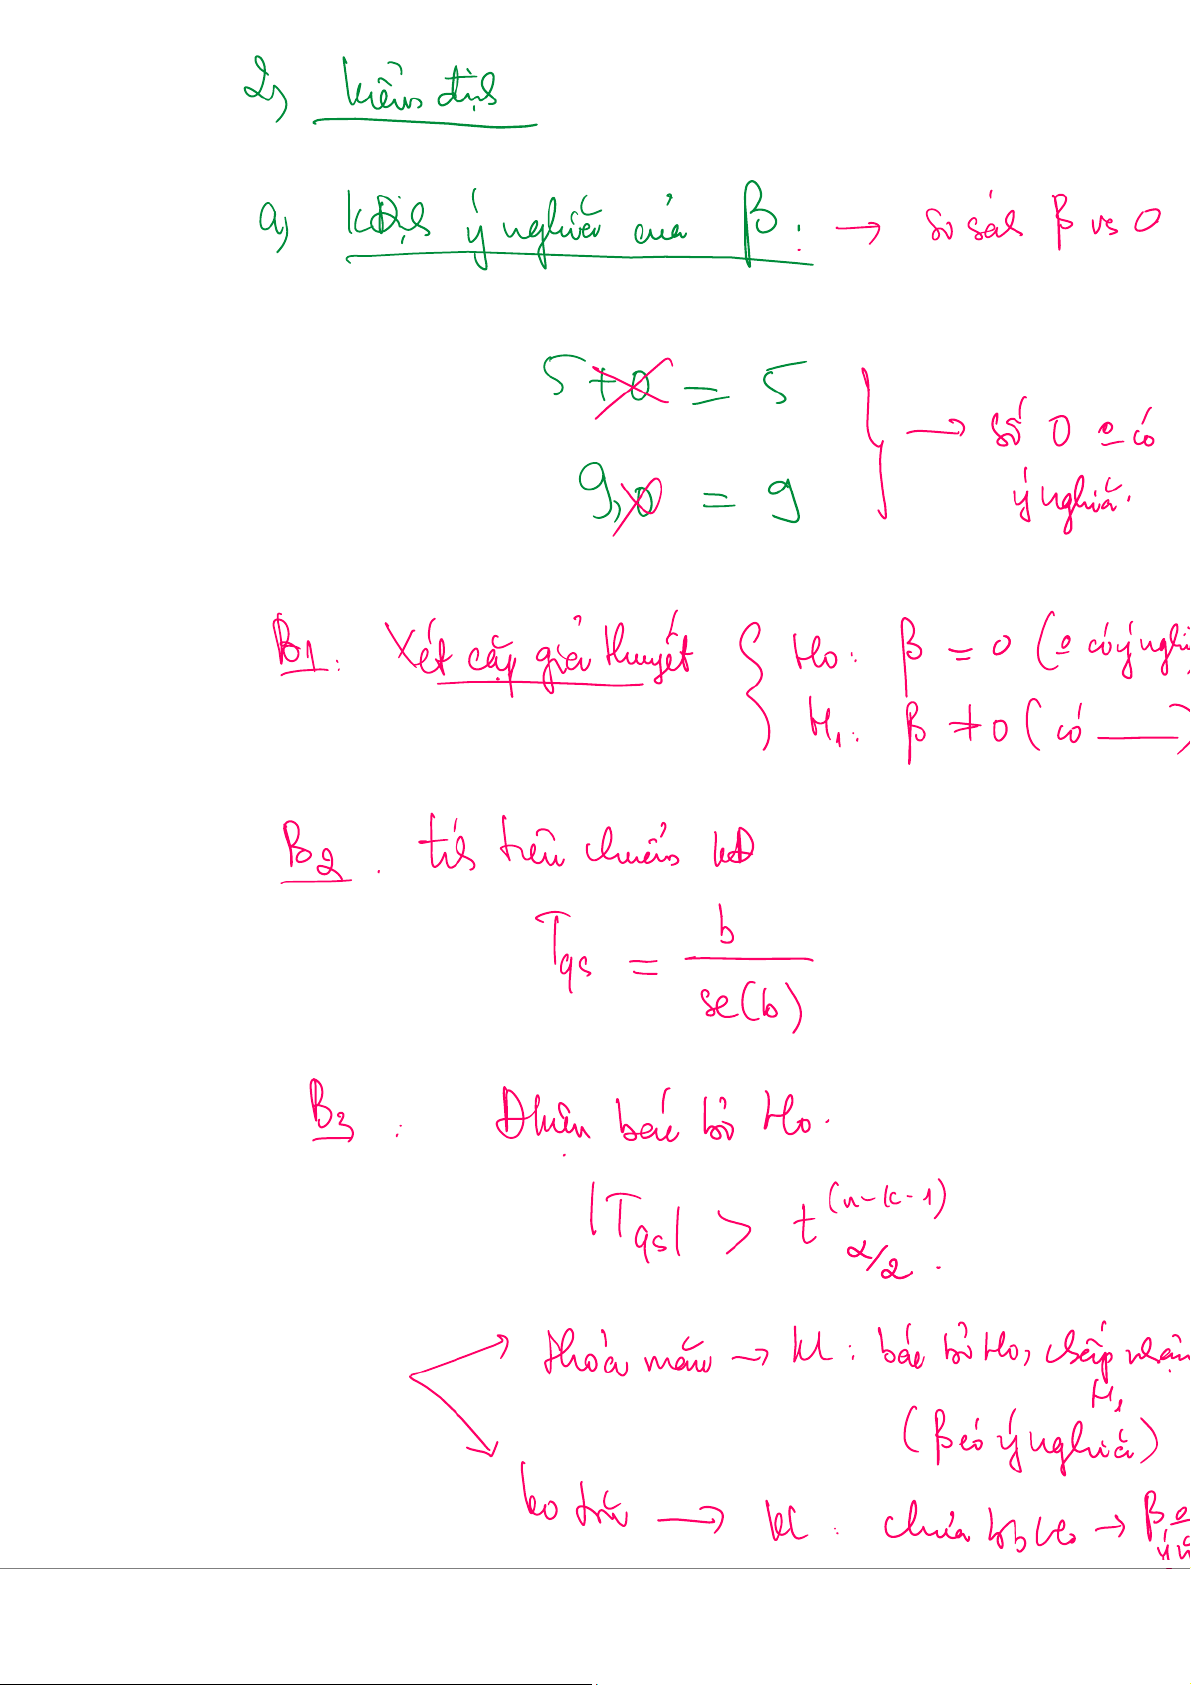 2) Kiểm định
a) KĐịnh ý nghĩa của β: → so sánh β vs 0
5 + 0 = 5
9,0 = 9
→ số 0 o có
ý nghĩa.
B1: Xét cặp giả thuyết { H0: β = 0 (o có ý nghĩ
H1: β ≠ 0 (có ___)
B2. tính tiêu chuẩn KĐ
Tqs = b / se(b)
B3: Đkiện bác bỏ H0.
|Tqs| > t (n-k-1) α/2.
→ thỏa mãn → kl: bác bỏ H0, chấp nhận
H1
(β có ý nghĩa)
ko → kl: chưa bb H0 → β o
ý n